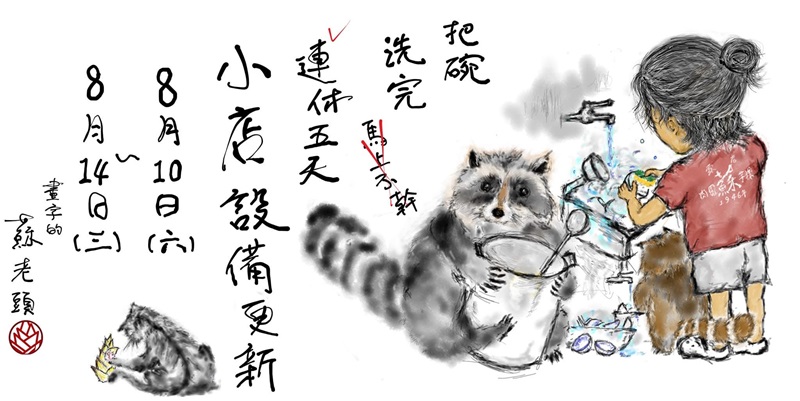 把碗
洗完
馬上不幹
連休五天
小店設備更新
8月10日(六)
～
8月14日(三)
畫字的
蘇老頭
蘇